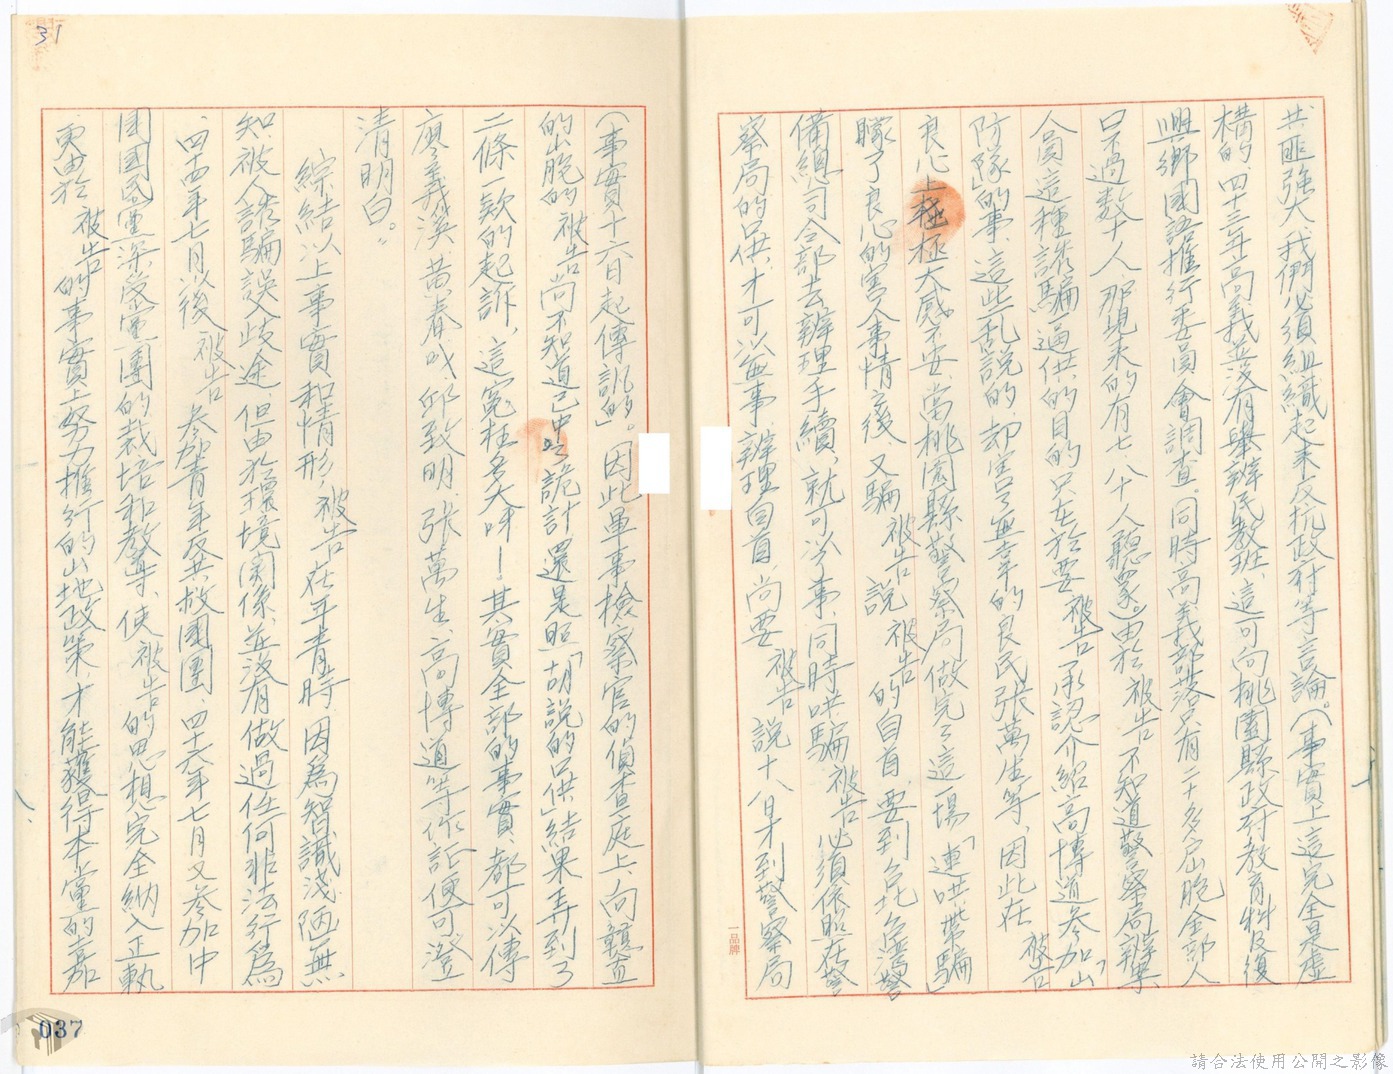 共匪強大，我們必須組織起來反抗政府等言論。（事實上這完全是虛
構的，四十三、五高義並沒有舉辦民教班，這可向桃園縣政府教育科及復
興鄉國語推行委員會調查。同時高義部落只有二十多户，脫全部人
口不過数十人，那現來的有七、八十人聽眾。）由於被告不知道警察局辦案
人員這種誘騙逼供的目的只在於要被告承認介紹高博道參加「山
防隊」的事，這些乱說的，却害了無辜的良民張萬生等，因此在被告
良心上極大感不安，當桃園縣警察局做完了這一場「連哄帶騙」
矇了良心的害人事情之後，又騙被告說被告的自首，要到台北台灣警
備總司令部去辦理手續，就可以分事，同時哄騙被告必須依照在警
察局的供，才可以無事，辦理自首，尚要被告說十八日才到警察局
（事實十六日起傳訊的）。因此軍事檢察官的偵查庭上，向
的出脫的被告尚不知道已中了詭計還是照「胡說的供」結果弄到了
二條一款的起訴，這冤枉多大呀！其實全部的事實，都可以傳
廖義溪、黃春成、邱致明、張萬生、高博道等作証便可澄
清明白。
綜結以上事實和情形，被告在年青時因為智識淺陋無
知，被人誘騙誤入歧途，但由於環境関係，並沒有做過任何非法行為
，四十四年七月以後被告參加青年反共救國團，四十六年七月又參加中
國國民黨深蒙黨團的栽培和教導，使被告的思想完全納入正軌
更由於被告的事實上努力推行的山地政策，才能獲得本黨的嘉
31
037
一品牌
請合法使用公開之影像